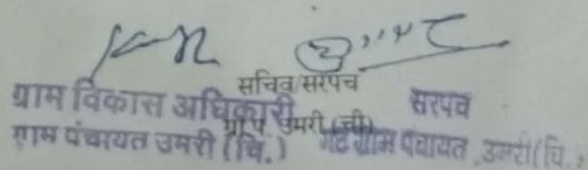 सचिव/सरपंच
ग्राम विकास अधिकारी सरपंच
ग्रा.पं. उमरी (ची)
ग्राम पंचायत उमरी (चि.) गट ग्राम पंचायत, उमरी (चि.)